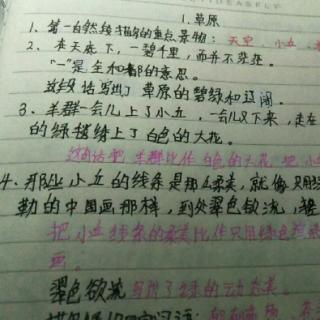 1.草原
1.第一自然段描写的重点景物：天空、小丘、
2.在天底下，一碧千里，而并不茫茫。
"一"是全和都的意思。
这句话写出了草原的碧绿和辽阔。
3、羊群一会儿上了小丘，一会儿又下来，走在
的绿毯绣上了白色的大花。
这句话把羊群比作白色的大花，把小
4.那些小丘的线条是那么柔美，就像只用
勒的中国画那样，到处翠色欲流，轻
把小丘线条的柔美比作只用绿色渲染
画。
翠色欲流写出了 的动态美。